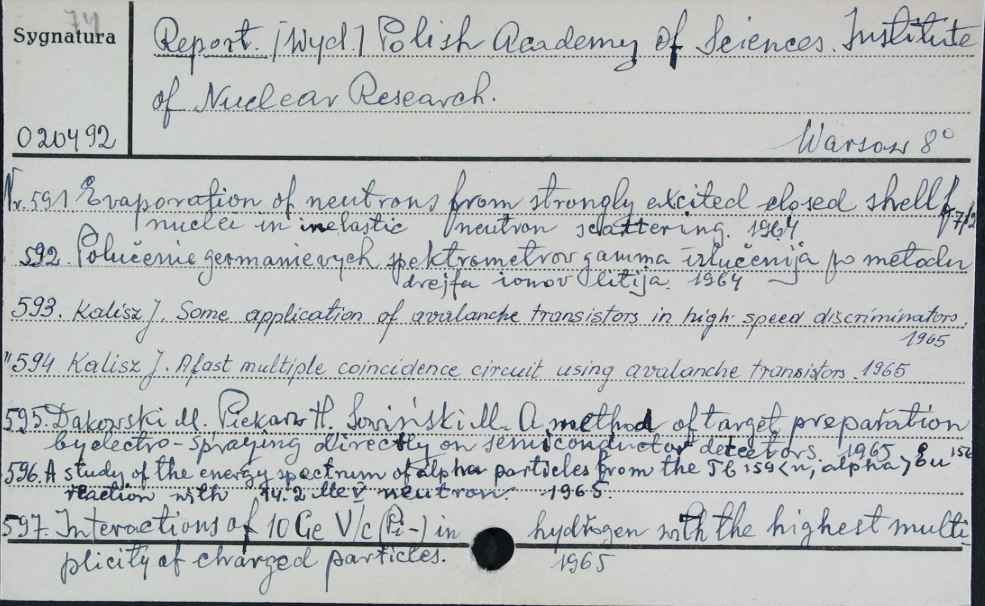 74
Sygnatura
Report. [Wyd.] Polish Academy of Sciences. Institute
of Nuclear Research.
020492
Warsaw 8°
Nr. 591 Evaporation of neutrons from strongly excited closed shell f 7/2
nuclei in inelastic neutron scattering. 1964
592. Polučenie germanievych spektrometrov gamma izlučenija po metodu
drejfa ionov litija. 1964
593. Kalisz J. Some application of avalanche transistors in high speed discriminators.
1965
"594 Kalisz J. A fast multiple coincidence circuit using avalanche transistors. 1965
595. Dakowski M. Piekarz H. Sowiński M. A method of target preparation
by electro-spraying directly on semiconductor detectors. 1965
596. A study of the energy spectrum of alpha particles from the Tb 159 <n, alpha> Eu 156
reaction with 14.2 MeV neutron. 1965.
597. Interactions of 10 Ge V/c (Pi-) in hydrogen with the highest multi-
plicity of charged particles. 1965